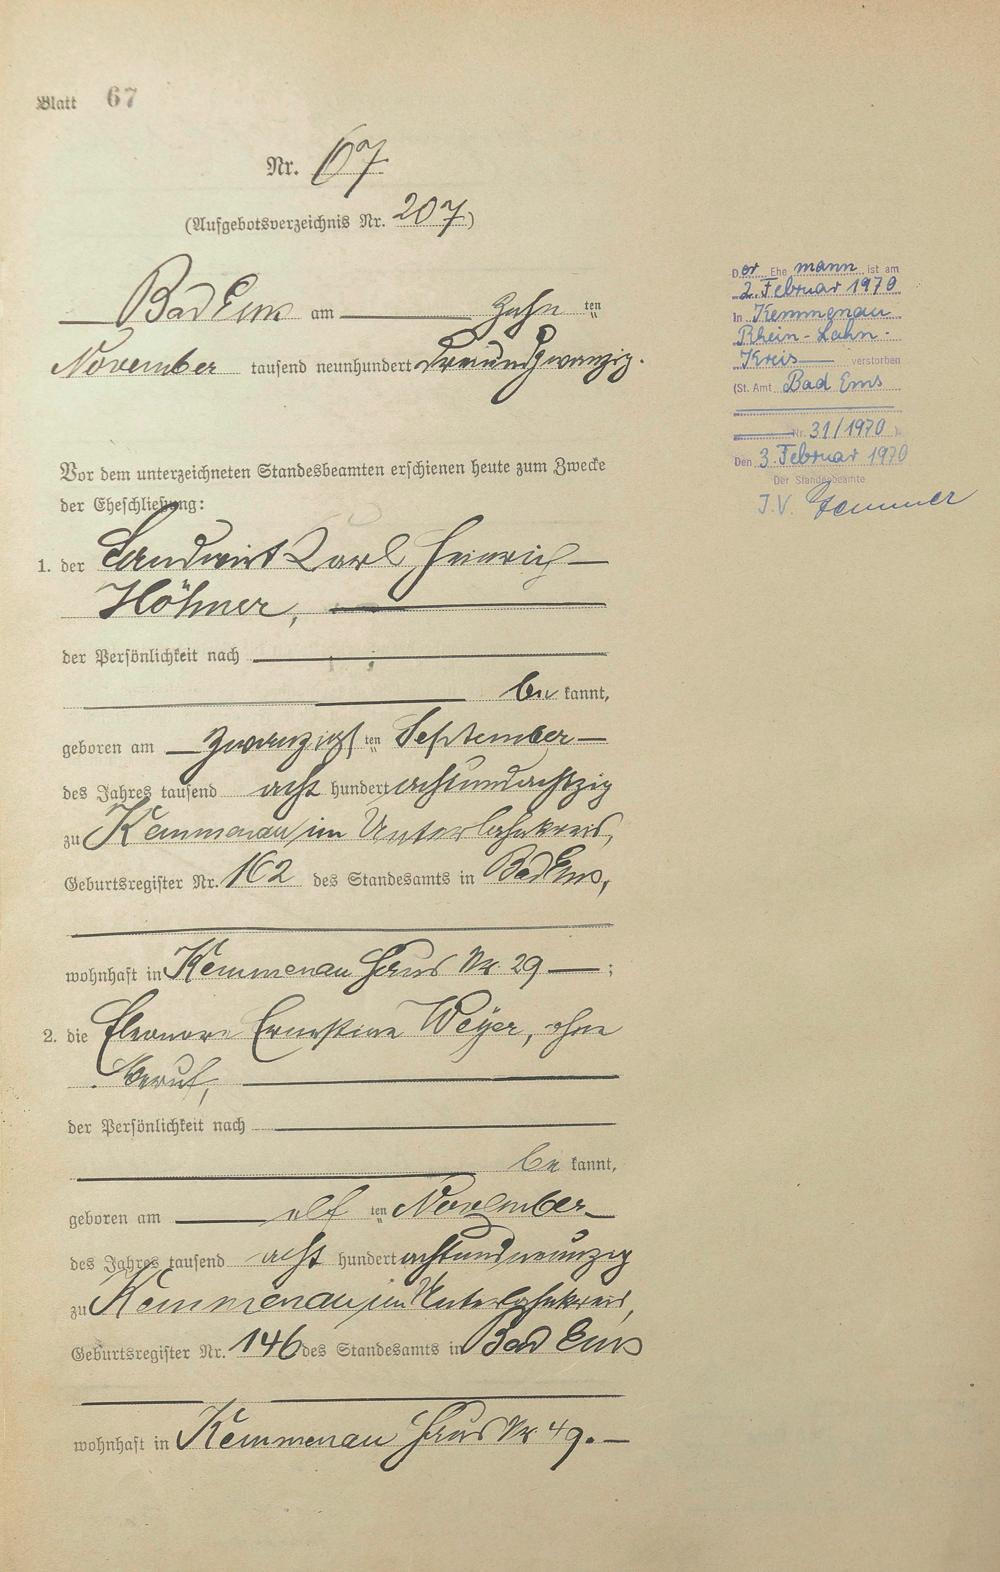 Blatt 67
Nr. 67
(Aufgebotsverzeichnis Nr. 207)
Bad Ems am zehn ten
November tausend neunhundert dreiundzwanzig.
Vor dem unterzeichneten Standesbeamten erschienen heute zum Zwecke
der Eheschließung:
1. der Landwirt Karl Heinrich
Höhner,
der Persönlichkeit nach
be kannt,
geboren am zwanzigs ten September
des Jahres tausend acht hundert achtundachtzig
zu Kemmenau im Unterlahnkreis,
Geburtsregister Nr. 162 des Standesamts in Bad Ems,
wohnhaft in Kemmenau Haus Nr. 29 ;
2. die Eleonore Ernestine Weyer, ohne
Beruf,
der Persönlichkeit nach
be kannt,
geboren am elf ten November
des Jahres tausend acht hundert achtundneunzig
zu Kemmenau im Unterlahnkreis,
Geburtsregister Nr. 146 des Standesamts in Bad Ems
wohnhaft in Kemmenau Haus Nr. 49.
Der Ehe mann ist am
2. Februar 1970
in Kemmenau
Rhein-Lahn-
Kreis verstorben
(St. Amt Bad Ems
Nr. 31/1970 ).
Den 3. Februar 1970
Der Standesbeamte
I.V.